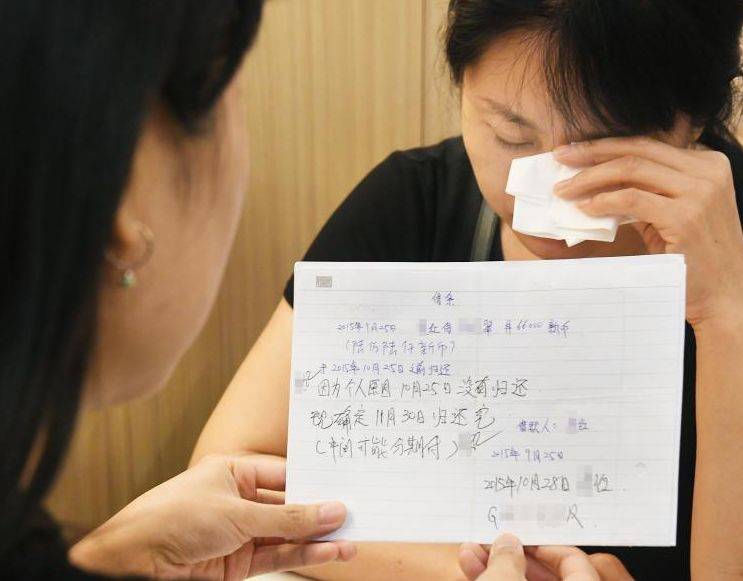 借条
2015年9月25日 近借 翠 共66000新币
(陆仟新币)
于2015年10月25日之前归还
因为个人原因10月25日没有归还
现确定11月30日归还完
(中间可能分期付)
借款人:
2015年9月25日
2015年10月28日
G R